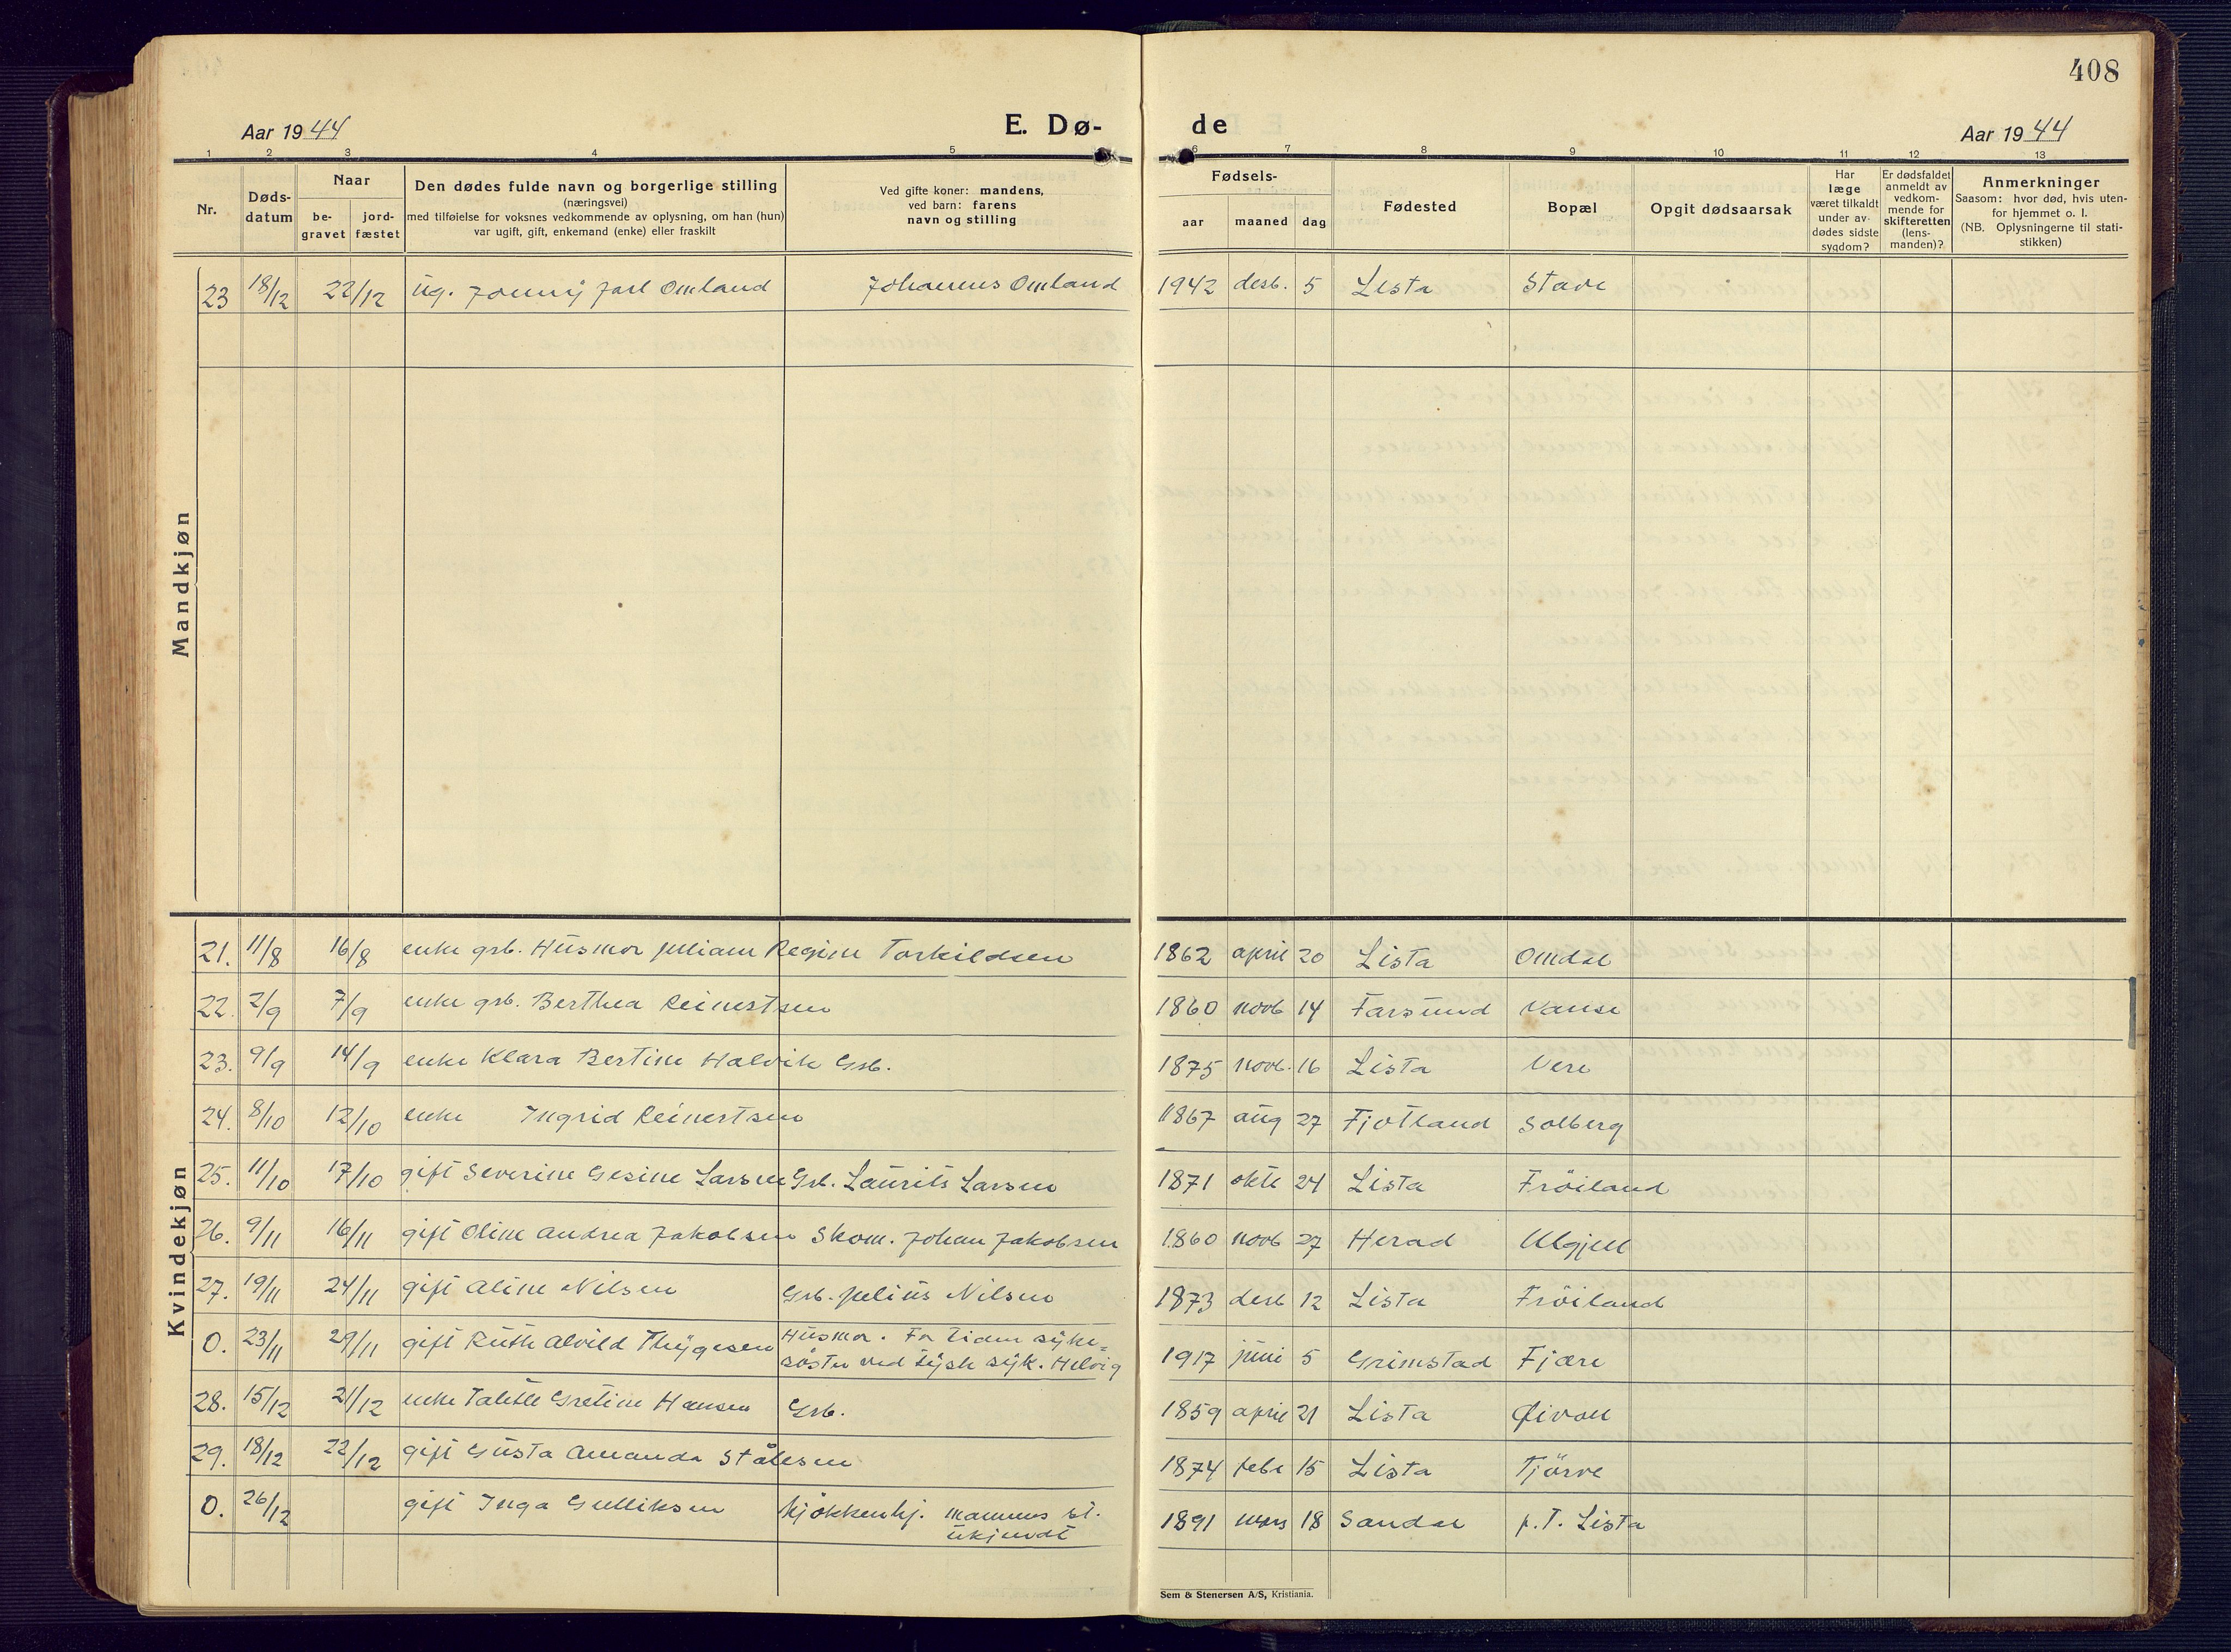 408
Aar 1944 E. Dø- de Aar 1944
1 2 3 4 5 6 7 8 9 10 11 12 13
Nr.
Døds-
datum
Naar
be-
gravet
jord-
fæstet
Den dødes fulde navn og borgerlige stilling
(næringsvei)
med tilføielse for voksnes vedkommende av oplysning, om han (hun)
var ugift, gift, enkemand (enke) eller fraskilt
Ved gifte koner: mandens,
ved barn: farens
navn og stilling
Fødsels-
aar maaned dag
Fødested
Bopæl
Opgit dødsaarsak
Har
læge
været tilkaldt
under av-
dødes sidste
sygdom?
Er dødsfaldet
anmeldt av
vedkom-
mende for
skifteretten
(lens-
manden)?
Anmerkninger
Saasom: hvor død, hvis uten-
for hjemmet o. l.
(NB. Oplysningerne til stati-
stikken)
Mandkjøn
23 18/12 22/12 ug. Jonny Jarl Omland Johannes Omland 1942 desb. 5 Lista Stave
Kvindekjøn
21. 11/8 16/8 enke grb. Husmor Juliane Regine Torkildsen 1862 april 20 Lista Omdal
22. 2/9 7/9 enke grb. Berthea Reinertsen 1860 novb 14 Farsund Vanse
23. 9/9 14/9 enke Klara Bertine Halvik Grb. 1875 novb. 16 Lista Vere
24. 8/10 12/10 enke Ingrid Reinertsen 1867 aug 27 Fjotland Solberg
25. 11/10 17/10 gift Severine Gesine Larsen Grb. Laurits Larsen 1871 oktb 24 Lista Fröiland
26. 9/11 16/11 gift Oline Andrea Jakobsen Skom. Johan Jakobsen 1860 novb 27 Herad Ulgjell
27. 19/11 24/11 gift Aline Nilsen Grb. Julius Nilsen 1873 desb 12 Lista Fröiland
0. 23/11 29/11 gift Ruth Alvild Thygesen Husmor. For tiden syke=
söster ved tysk syk. Helvig 1917 juni 5 Grimstad Fjære
28. 15/12 21/12 enke Talette Gretine Hansen Grb. 1859 april 21 Lista Øivoll
29. 18/12 22/12 gift Gusta Amanda Stålesen 1874 febr 15 Lista Tjörve
0. 26/12 gift Inga Gulliksen Kjökkenhj. mannens st.
ukjendt 1891 mars 18 Sandar p.T. Lista
Sem & Stenersen A/S, Kristiania.